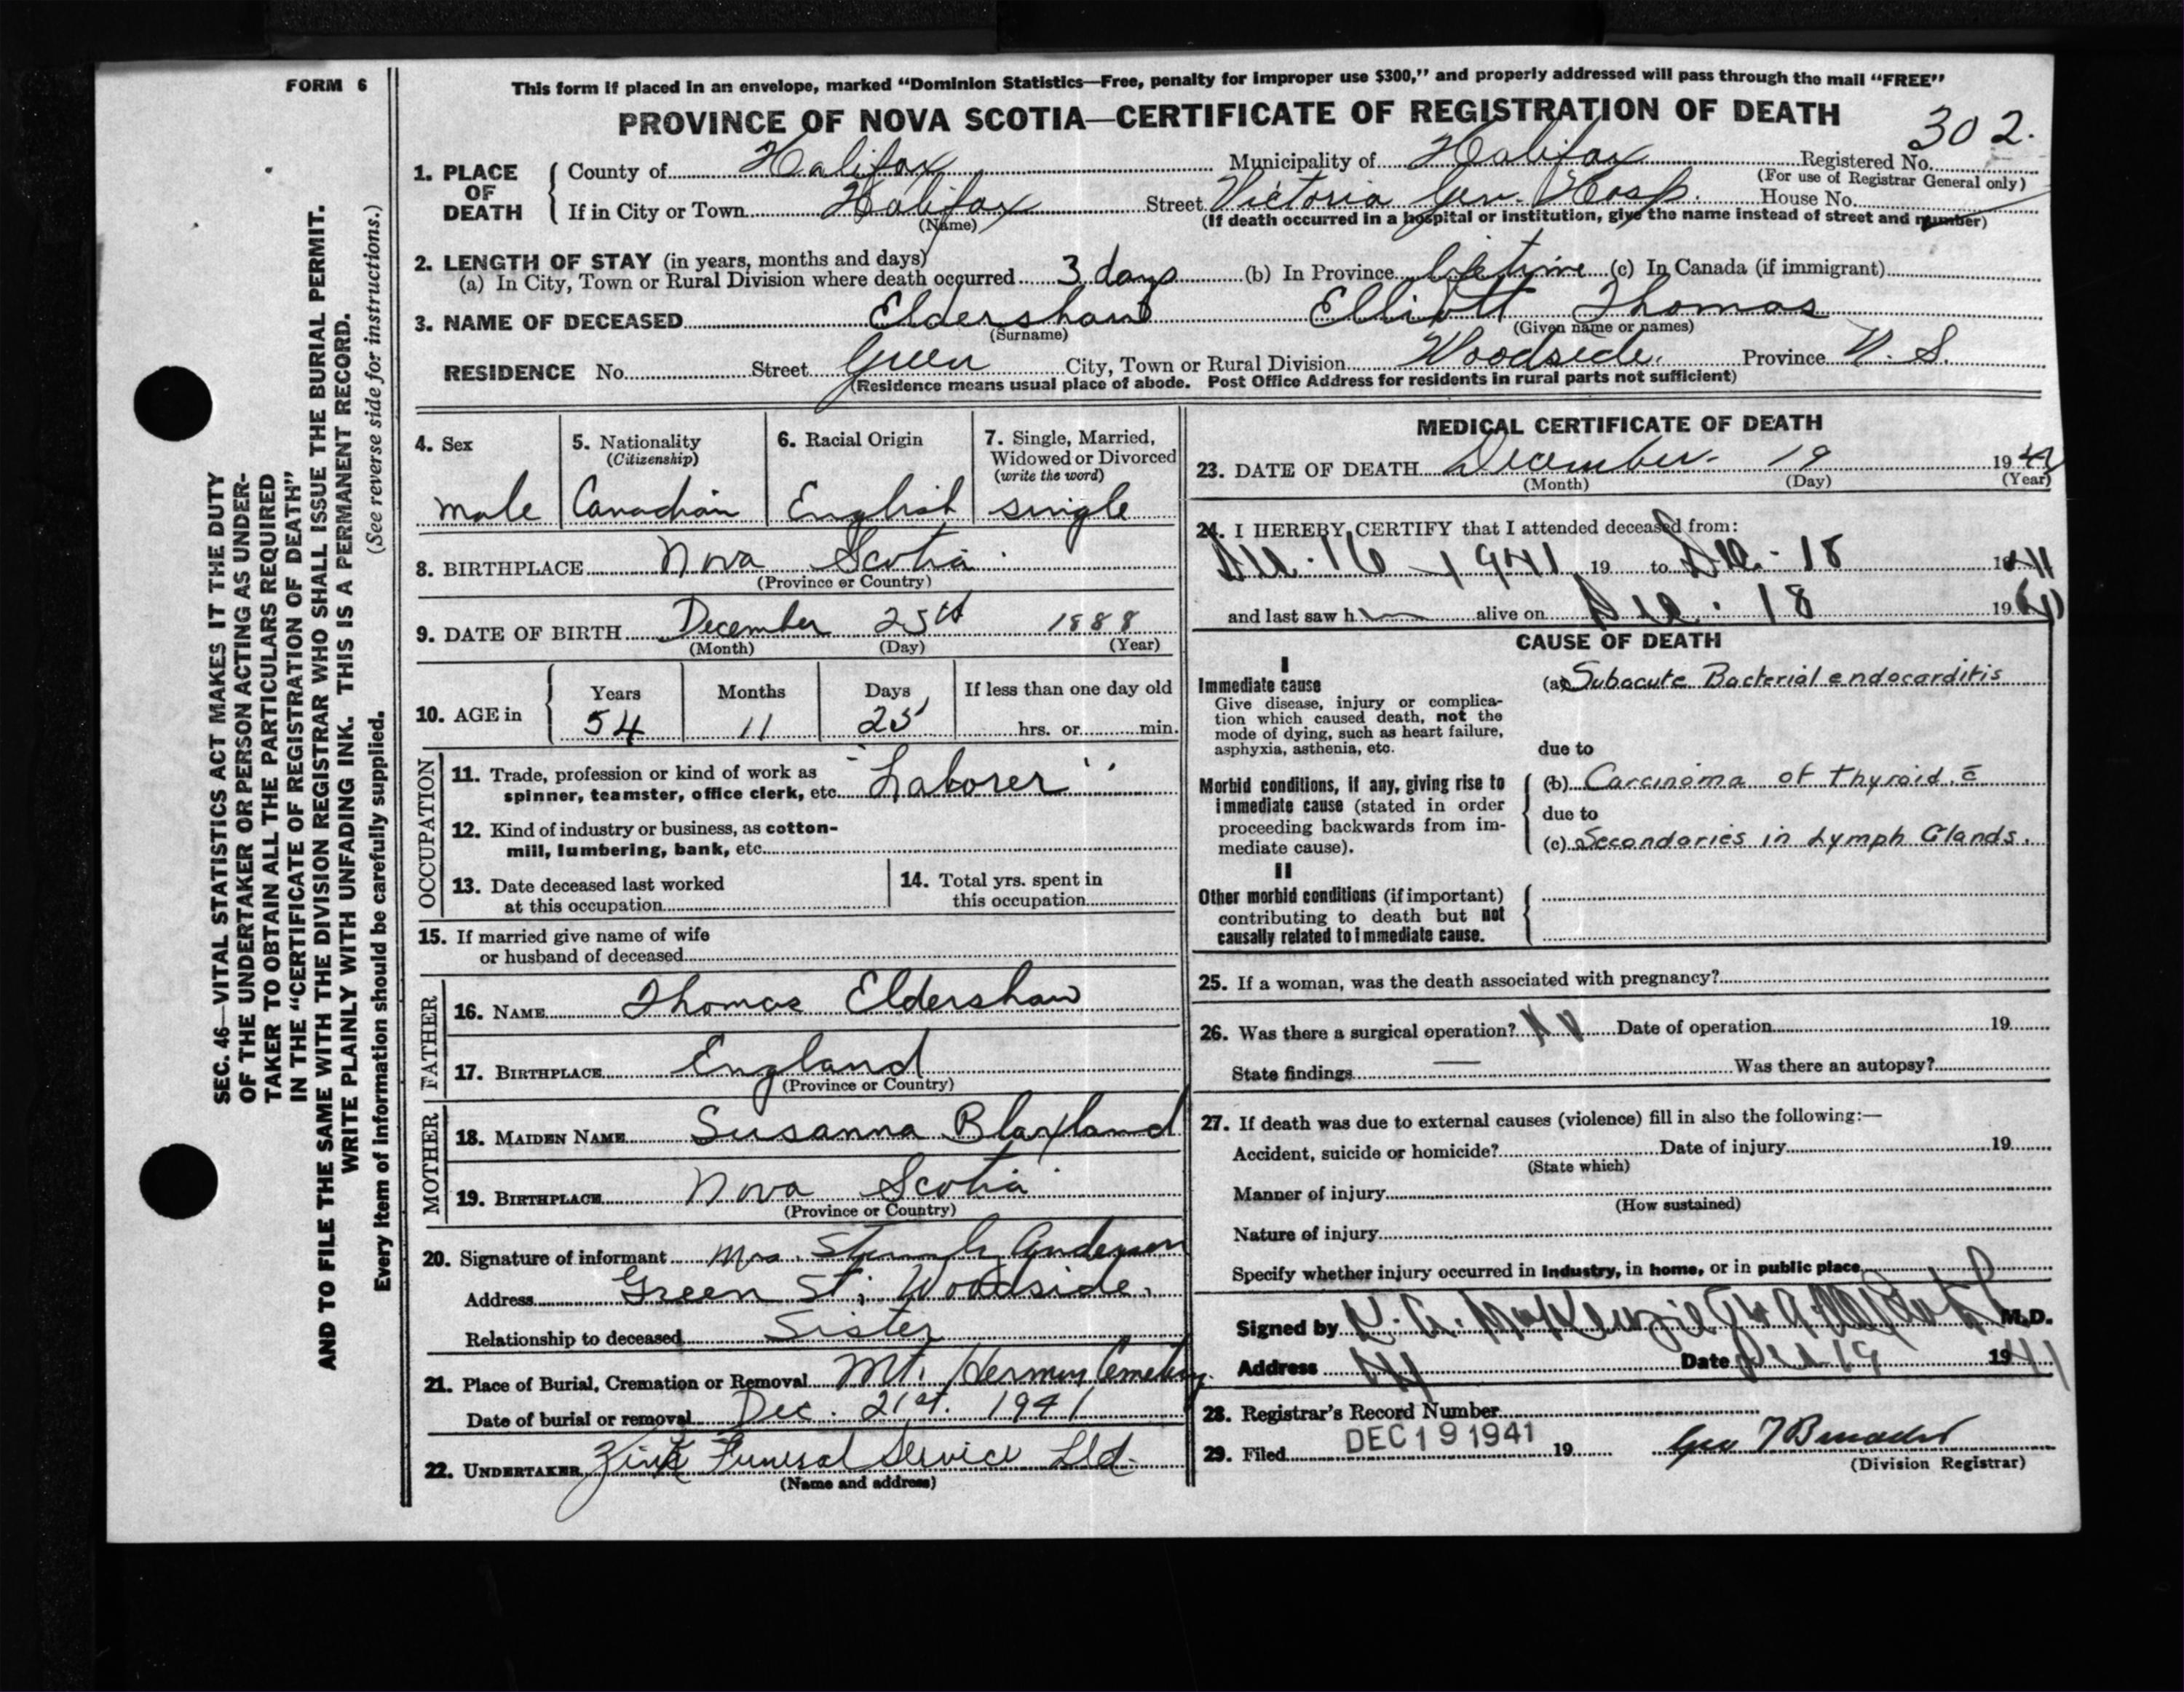 FORM 6
This form if placed in an envelope, marked “Dominion Statistics—Free, penalty for improper use $300,” and properly addressed will pass through the mail “FREE”
PROVINCE OF NOVA SCOTIA—CERTIFICATE OF REGISTRATION OF DEATH
302.
1. PLACE OF DEATH
County of Halifax Municipality of Halifax Registered No.
(For use of Registrar General only)
If in City or Town Halifax Street Victoria Gen. Hosp. House No.
(Name) (If death occurred in a hospital or institution, give the name instead of street and number)
2. LENGTH OF STAY (in years, months and days)
(a) In City, Town or Rural Division where death occurred 3 days (b) In Province lifetime (c) In Canada (if immigrant)
3. NAME OF DECEASED Eldershaw Elliott Thomas
(Surname) (Given name or names)
RESIDENCE No. Street Green City, Town or Rural Division Woodside. Province N. S.
(Residence means usual place of abode. Post Office Address for residents in rural parts not sufficient)
4. Sex
male
5. Nationality
(Citizenship)
Canadian
6. Racial Origin
English
7. Single, Married,
Widowed or Divorced
(write the word)
single
8. BIRTHPLACE Nova Scotia
(Province or Country)
9. DATE OF BIRTH December 25th 1888
(Month) (Day) (Year)
10. AGE in
Years Months Days If less than one day old
54 11 25 hrs. or min.
OCCUPATION
11. Trade, profession or kind of work as
spinner, teamster, office clerk, etc. "Laborer"
12. Kind of industry or business, as cotton-
mill, lumbering, bank, etc.
13. Date deceased last worked
at this occupation
14. Total yrs. spent in
this occupation
15. If married give name of wife
or husband of deceased
FATHER
16. NAME Thomas Eldershaw
17. BIRTHPLACE England
(Province or Country)
MOTHER
18. MAIDEN NAME Susanna Blaxland
19. BIRTHPLACE Nova Scotia
(Province or Country)
20. Signature of informant Mrs. Anderson
Address Green St., Woodside.
Relationship to deceased Sister
21. Place of Burial, Cremation or Removal Mt. Hermon Cemetery.
Date of burial or removal Dec. 21st. 1941
22. UNDERTAKER Zink Funeral Service Ltd.
(Name and address)
MEDICAL CERTIFICATE OF DEATH
23. DATE OF DEATH December 19 19
(Month) (Day) (Year)
24. I HEREBY CERTIFY that I attended deceased from:
Dec. 16 1941 19 to Dec. 18 1941
and last saw h alive on Dec. 18 1941
CAUSE OF DEATH
I
Immediate cause
Give disease, injury or complica-
tion which caused death, not the
mode of dying, such as heart failure,
asphyxia, asthenia, etc.
(a) Subacute Bacterial endocarditis
due to
Morbid conditions, if any, giving rise to
immediate cause (stated in order
proceeding backwards from im-
mediate cause).
(b) Carcinoma of thyroid. c̄
due to
(c) Secondaries in Lymph Glands.
II
Other morbid conditions (if important)
contributing to death but not
causally related to immediate cause.
25. If a woman, was the death associated with pregnancy?
26. Was there a surgical operation? No Date of operation 19
State findings — Was there an autopsy?
27. If death was due to external causes (violence) fill in also the following:—
Accident, suicide or homicide? Date of injury 19
(State which)
Manner of injury
(How sustained)
Nature of injury
Specify whether injury occurred in industry, in home, or in public place
Signed by K. A. MacKenzie M.D.
Address Date Dec 19 1941
28. Registrar's Record Number
29. Filed DEC 19 1941 19 Geo
(Division Registrar)
SEC. 46—VITAL STATISTICS ACT MAKES IT THE DUTY
OF THE UNDERTAKER OR PERSON ACTING AS UNDER-
TAKER TO OBTAIN ALL THE PARTICULARS REQUIRED
IN THE “CERTIFICATE OF REGISTRATION OF DEATH”
AND TO FILE THE SAME WITH THE DIVISION REGISTRAR WHO SHALL ISSUE THE BURIAL PERMIT.
WRITE PLAINLY WITH UNFADING INK. THIS IS A PERMANENT RECORD.
Every item of information should be carefully supplied. (See reverse side for instructions.)